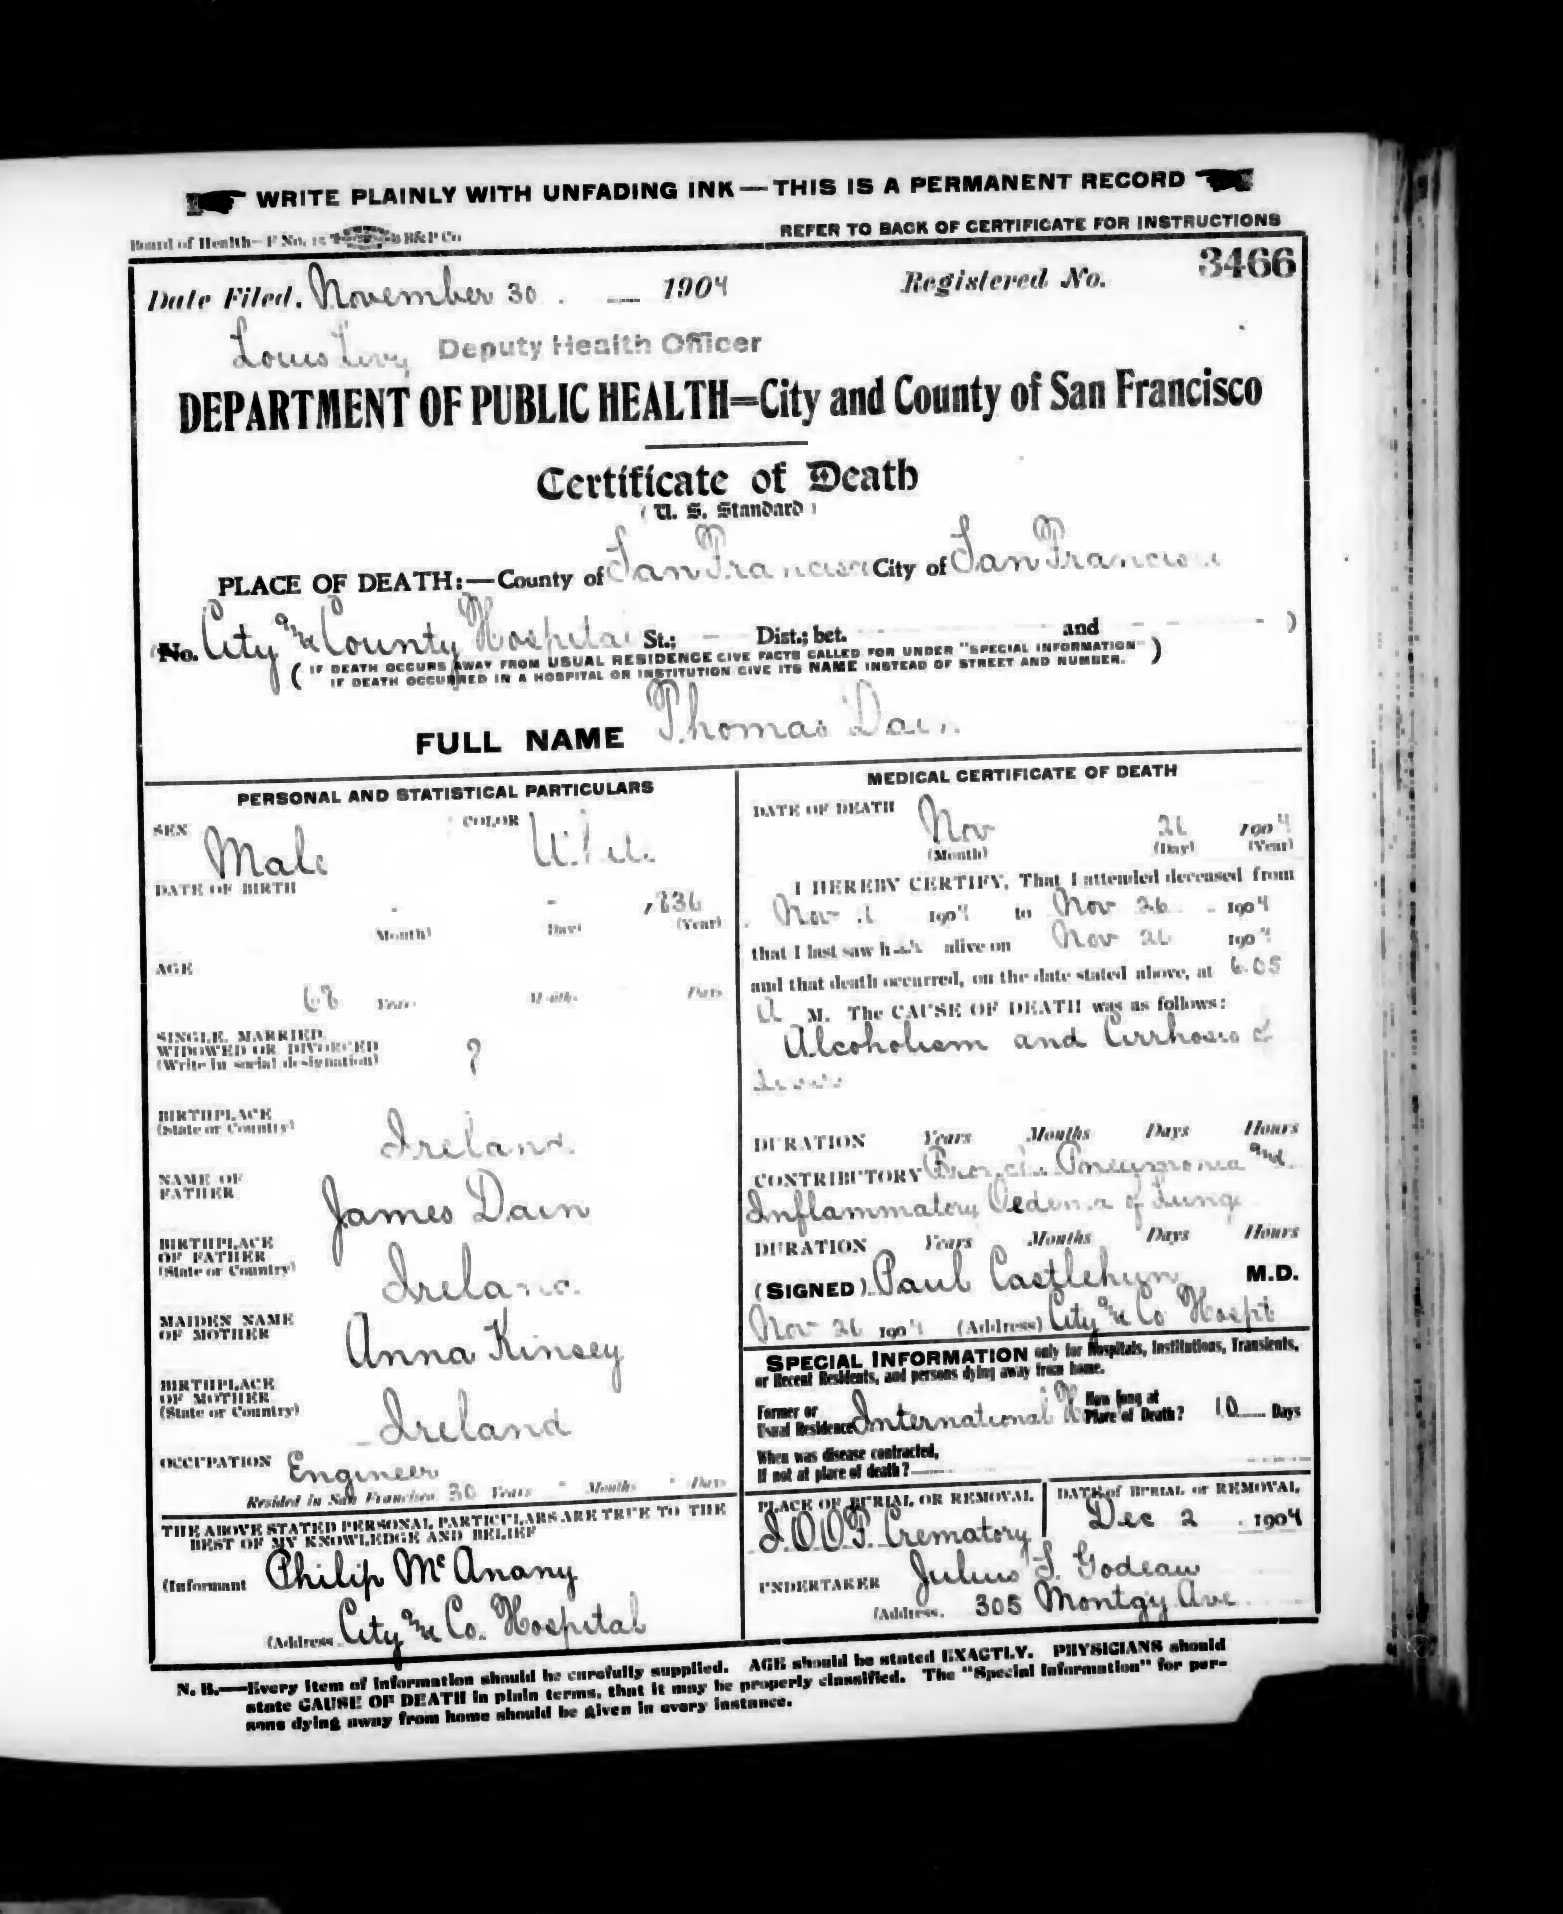 WRITE PLAINLY WITH UNFADING INK — THIS IS A PERMANENT RECORD
Board of Health—F No. 15 B&P Co
REFER TO BACK OF CERTIFICATE FOR INSTRUCTIONS
Date Filed, November 30 . 1904 Registered No. 3466
Louis Levy Deputy Health Officer
DEPARTMENT OF PUBLIC HEALTH=City and County of San Francisco
Certificate of Death
( U. S. Standard )
PLACE OF DEATH:—County of San Francisco City of San Francisco
(No. City and County Hospital St.; - Dist.; bet. - and - )
( IF DEATH OCCURS AWAY FROM USUAL RESIDENCE GIVE FACTS CALLED FOR UNDER "SPECIAL INFORMATION" )
IF DEATH OCCURRED IN A HOSPITAL OR INSTITUTION GIVE ITS NAME INSTEAD OF STREET AND NUMBER.
FULL NAME Thomas Dain
PERSONAL AND STATISTICAL PARTICULARS
SEX Male COLOR White
DATE OF BIRTH - - 1836
(Month) (Day) (Year)
AGE
68 Years Months Days
SINGLE, MARRIED,
WIDOWED OR DIVORCED
(Write in social designation) ?
BIRTHPLACE
(State or Country) Ireland
NAME OF
FATHER James Dain
BIRTHPLACE
OF FATHER
(State or Country) Ireland
MAIDEN NAME
OF MOTHER Anna Kinsey
BIRTHPLACE
OF MOTHER
(State or Country) Ireland
OCCUPATION Engineer
Resided in San Francisco 30 Years - Months - Days
THE ABOVE STATED PERSONAL PARTICULARS ARE TRUE TO THE
BEST OF MY KNOWLEDGE AND BELIEF
(Informant Philip McAnany
(Address City and Co. Hospital
MEDICAL CERTIFICATE OF DEATH
DATE OF DEATH Nov 26 1904
(Month) (Day) (Year)
I HEREBY CERTIFY, That I attended deceased from
Nov 1904 to Nov 26 1904
that I last saw h alive on Nov 26 1904
and that death occurred, on the date stated above, at 6.05
A M. The CAUSE OF DEATH was as follows:
Alcoholism and Cirrhosis of
Liver
DURATION Years Months Days Hours
CONTRIBUTORY Broncho Pneumonia and
Inflammatory Oedema of Lungs
DURATION Years Months Days Hours
(SIGNED) Paul Castlehun M.D.
Nov 26 1904 (Address) City and Co Hospt
SPECIAL INFORMATION only for Hospitals, Institutions, Transients,
or Recent Residents, and persons dying away from home.
Former or
Usual Residence International How long at
Place of Death? 10 Days
When was disease contracted,
If not at place of death?
PLACE OF BURIAL OR REMOVAL DATE of BURIAL or REMOVAL
I.O.O.F. Crematory Dec 2 . 1904
UNDERTAKER Julius S. Godeau
(Address. 305 Montgy Ave
N. B.—Every item of information should be carefully supplied. AGE should be stated EXACTLY. PHYSICIANS should
state CAUSE OF DEATH in plain terms, that it may be properly classified. The "Special Information" for per-
sons dying away from home should be given in every instance.